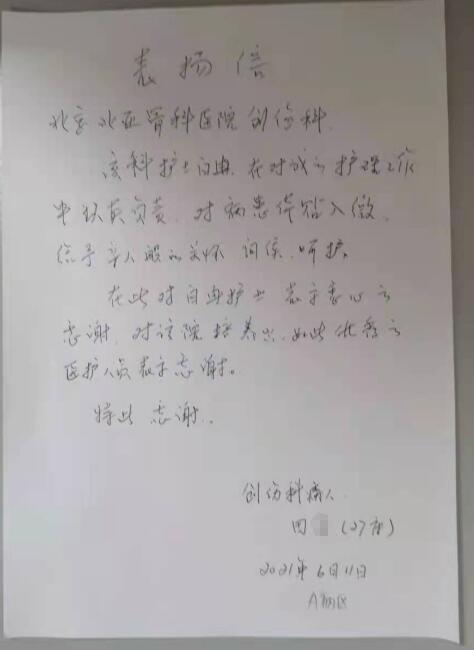 表扬信
北京北亚骨科医院创伤科.
该科护士白典.在对我的护理工作
中认真负责.对病患体贴入微.
给予亲人般的关怀 问候.呵护。
在此对白典护士 表示衷心的
感谢.对该院培养出.如此优秀的
医护人员表示感谢。
特此 感谢.
创伤科病人.
田 (27床)
2021年6月11日
A病区